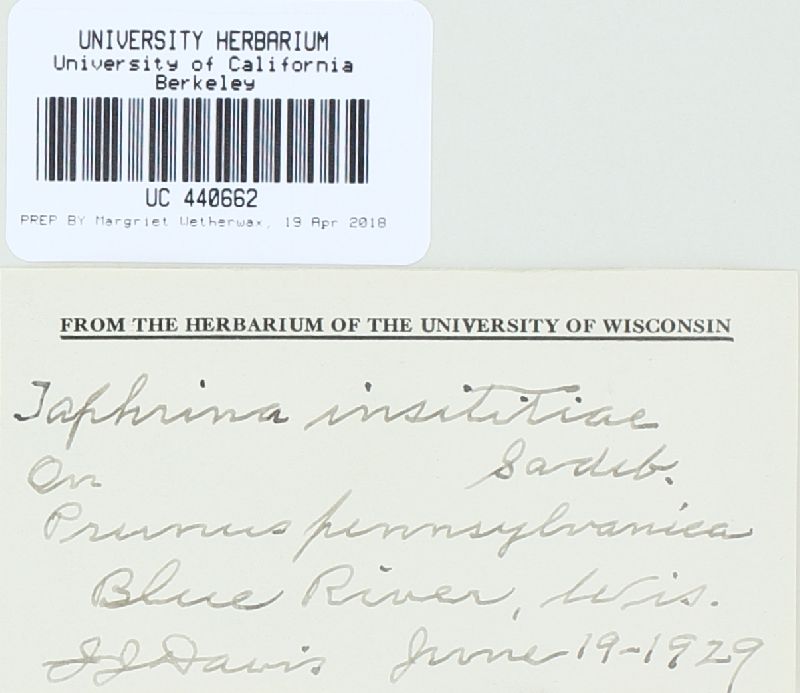 UNIVERSITY HERBARIUM
University of California
Berkeley
UC 440662
PREP BY Margriet Wetherwax, 19 Apr 2018
FROM THE HERBARIUM OF THE UNIVERSITY OF WISCONSIN
Taphrina insititiae
Sadeb.
On
Prunus pennsylvanica
Blue River, Wis.
JJ Davis June 19-1929